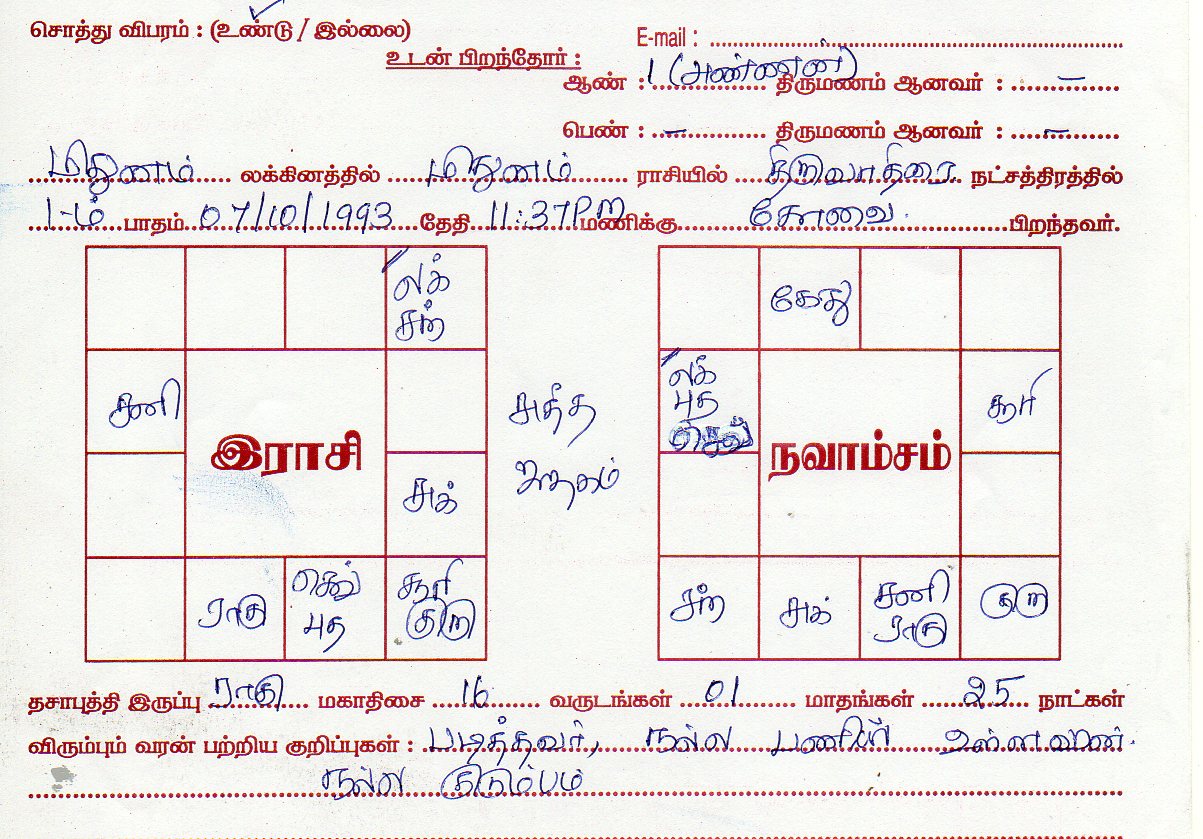 சொத்து விபரம் : (உண்டு / இல்லை)
E-mail : ..........
உடன் பிறந்தோர் :
ஆண் : 1 (அண்ணன்) திருமணம் ஆனவர் : –
பெண் : – திருமணம் ஆனவர் : –
மிதுனம் லக்கினத்தில் மிதுனம் ராசியில் திருவாதிரை நட்சத்திரத்தில்
1-ம் பாதம் 07/10/1993 தேதி 11:37PM மணிக்கு கோவை பிறந்தவர்.
லக்
சந்
சனி
இராசி
சுக்
ராகு
செவ்
புத
சூரி
குரு
கேது
லக்
புத
செவ்
சூரி
நவாம்சம்
சந்
சுக்
சனி
ராகு
குரு
தசாபுத்தி இருப்பு ராகு மகாதிசை 16 வருடங்கள் 01 மாதங்கள் 25 நாட்கள்
விரும்பும் வரன் பற்றிய குறிப்புகள் : படித்தவர், நல்ல பணியில் உள்ளவன்.
நல்ல குடும்பம்